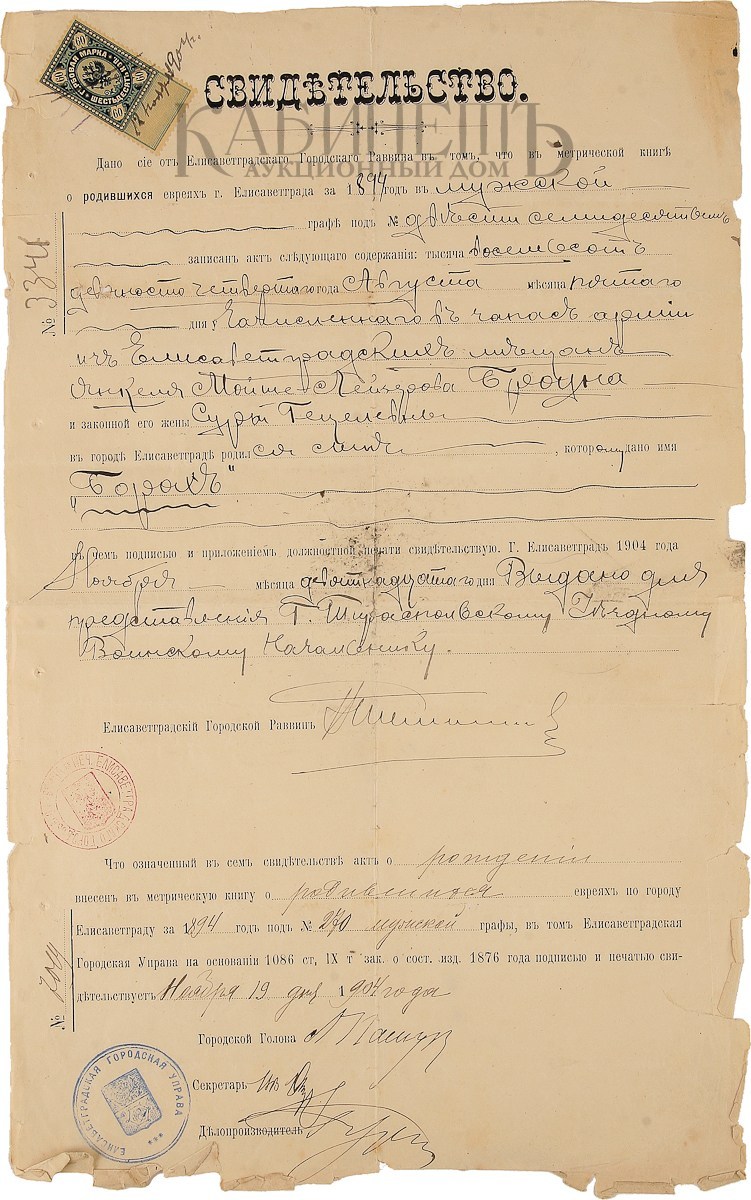 ГЕРБОВАЯ МАРКА
ШЕСТЬДЕСЯТ
60
60
60
60
СВИДѢТЕЛЬСТВО.
КАБИНЕТЪ
АУКЦИОННЫЙ ДОМ
Дано сіе отъ Елисаветградскаго Городскаго Раввина въ томъ, что въ метрической книгѣ
о родившихся евреяхъ г. Елисаветграда за 1894 годъ въ мужской
графѣ подъ № двѣсти семидесятымъ
записанъ актъ слѣдующаго содержанія: тысяча восемьсотъ
девяносто четвертаго года Августа мѣсяца пятаго
№ 3341
дня у Зачисленнаго въ запасъ арміи
изъ Елисаветградскихъ мѣщанъ
Янкеля Мойше-Лейзерова Брауна
и законной его жены Суры
въ городѣ Елисаветградѣ родился сынъ, которому дано имя
"Борахъ"
въ чемъ подписью и приложеніемъ должностной печати свидѣтельствую. Г. Елисаветградъ 1904 года
Ноября мѣсяца девятнадцатаго дня Выдано для
представленія Г. Тираспольскому Уѣздному
Воинскому Начальнику.
Елисаветградскій Городской Раввинъ
Что означенный въ семъ свидѣтельствѣ актъ о рожденіи
внесенъ въ метрическую книгу о родившихся евреяхъ по городу
Елисаветграду за 1894 годъ подъ № 270 мужской графы, въ томъ Елисаветградская
Городская Управа на основаніи 1086 ст, IX т зак. о сост. изд. 1876 года подписью и печатью сви-
дѣтельствуетъ Ноября 19 дня 1904 года
№
Городской Голова
Секретарь
Дѣлопроизводитель
ЕЛИСАВЕТГРАДСКАЯ ГОРОДСКАЯ УПРАВА